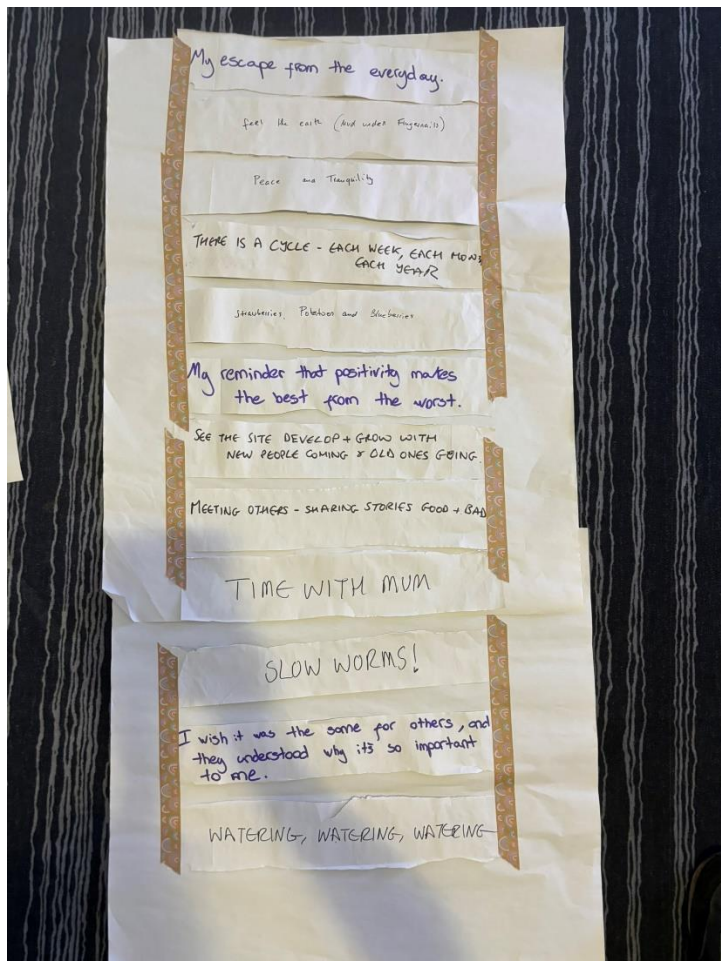 My escape from the everyday.
feel the earth (mud under fingernails)
Peace and Tranquility
THERE IS A CYCLE - EACH WEEK, EACH MON
EACH YEAR
Strawberries, Potatoes and Blueberries
My reminder that positivity makes
the best from the worst.
SEE THE SITE DEVELOP + GROW WITH
NEW PEOPLE COMING & OLD ONES GOING.
MEETING OTHERS - SHARING STORIES GOOD + BAD
TIME WITH MUM
SLOW WORMS!
I wish it was the same for others, and
they understood why it's so important
to me.
WATERING, WATERING, WATERING